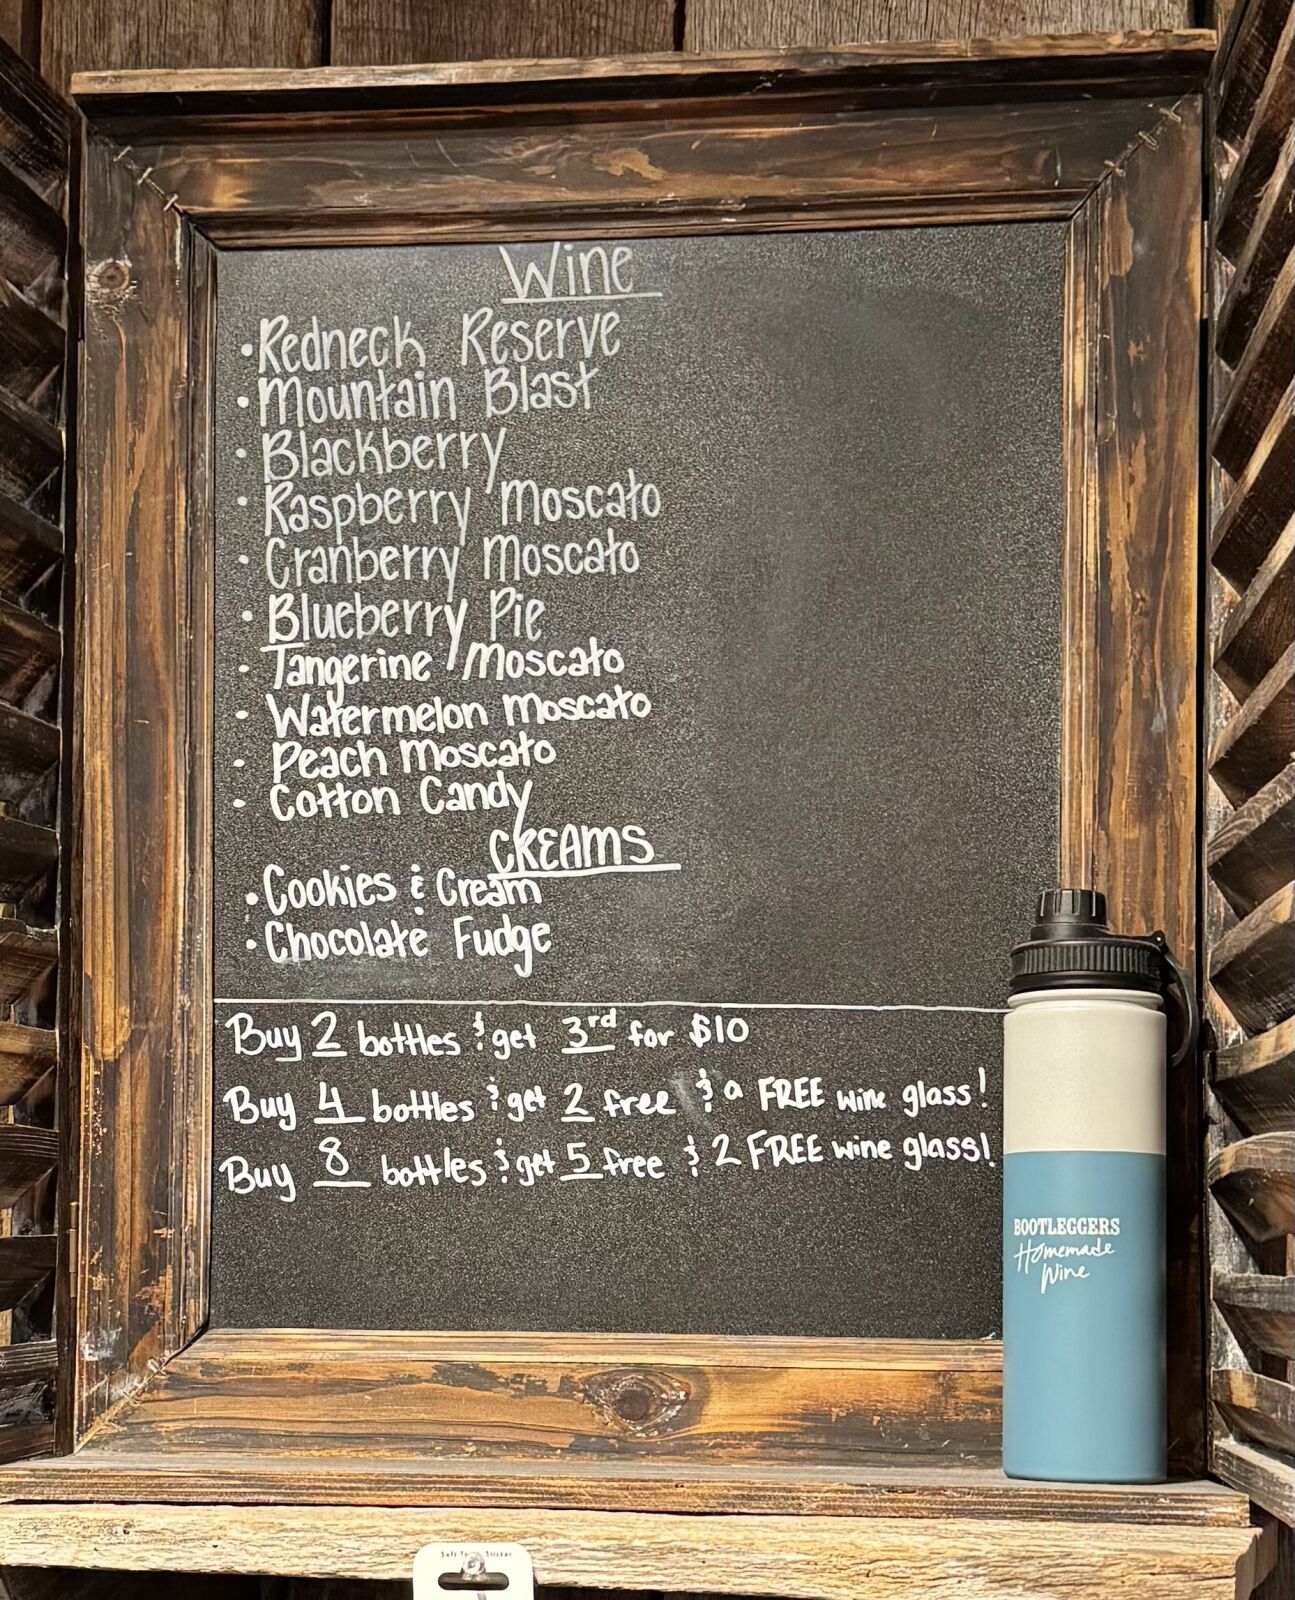 Wine
• Redneck Reserve
• Mountain Blast
• Blackberry
• Raspberry Moscato
• Cranberry Moscato
• Blueberry Pie
• Tangerine Moscato
• Watermelon Moscato
• Peach Moscato
• Cotton Candy
CREAMS
• Cookies & Cream
• Chocolate Fudge
Buy 2 bottles & get 3rd for $10
Buy 4 bottles & get 2 free & a FREE wine glass!
Buy 8 bottles & get 5 free & 2 FREE wine glass!
BOOTLEGGERS
Homemade
Wine
Soft Sticker